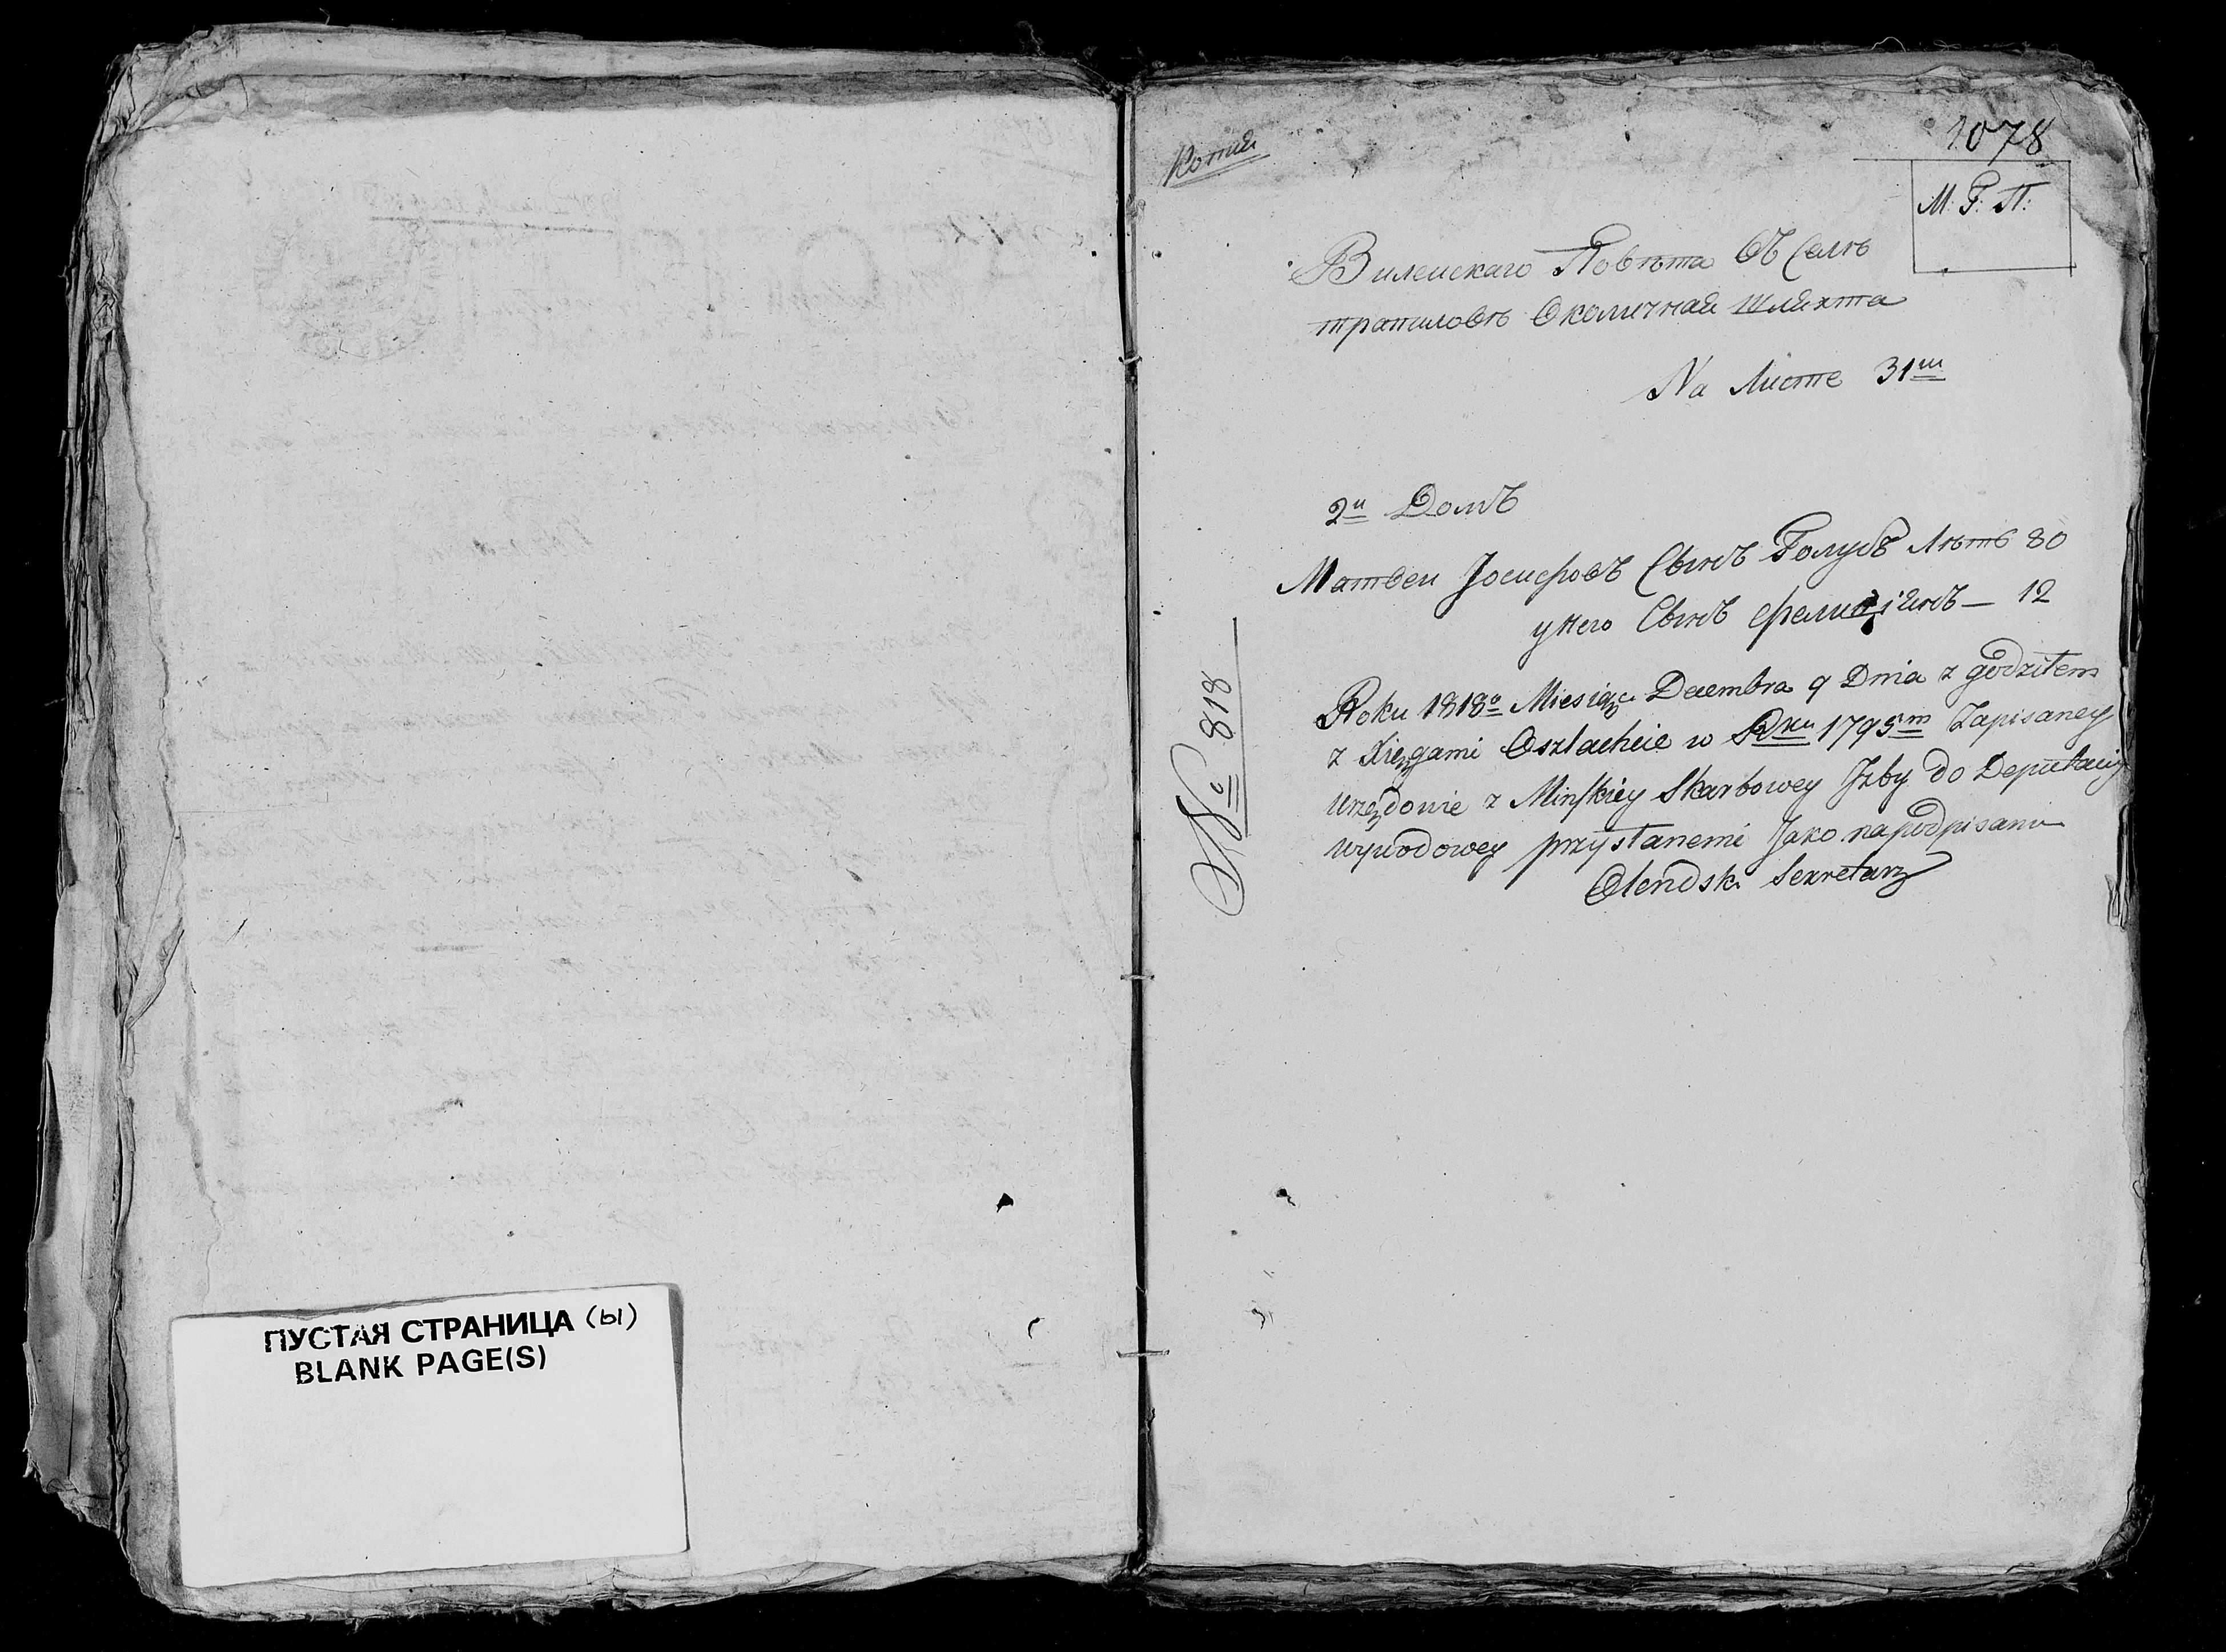 ПУСТАЯ СТРАНИЦА (ы)
BLANK PAGE(S)
Копия
1078
М: Г: П:
Вилейскаго Повѣта Въ Селѣ
трапиловѣ Околичная шляхта
На Листе 31м
2й Домъ
Матвеи Іосифовъ Сынъ Голубъ Лѣтъ 80
у него Сынъ 12
№ 818
Roku 1818o Miesiąca Decembra 9 Dnia z godziłem
z Xięgami Oszlachcie w Rku 1795m Zapisaney
urzędonie z Minskiey Skarbowey Jzby do Deputacij
wywodowey przysłanemi Jako napodpisano
Olendski Sekretarz